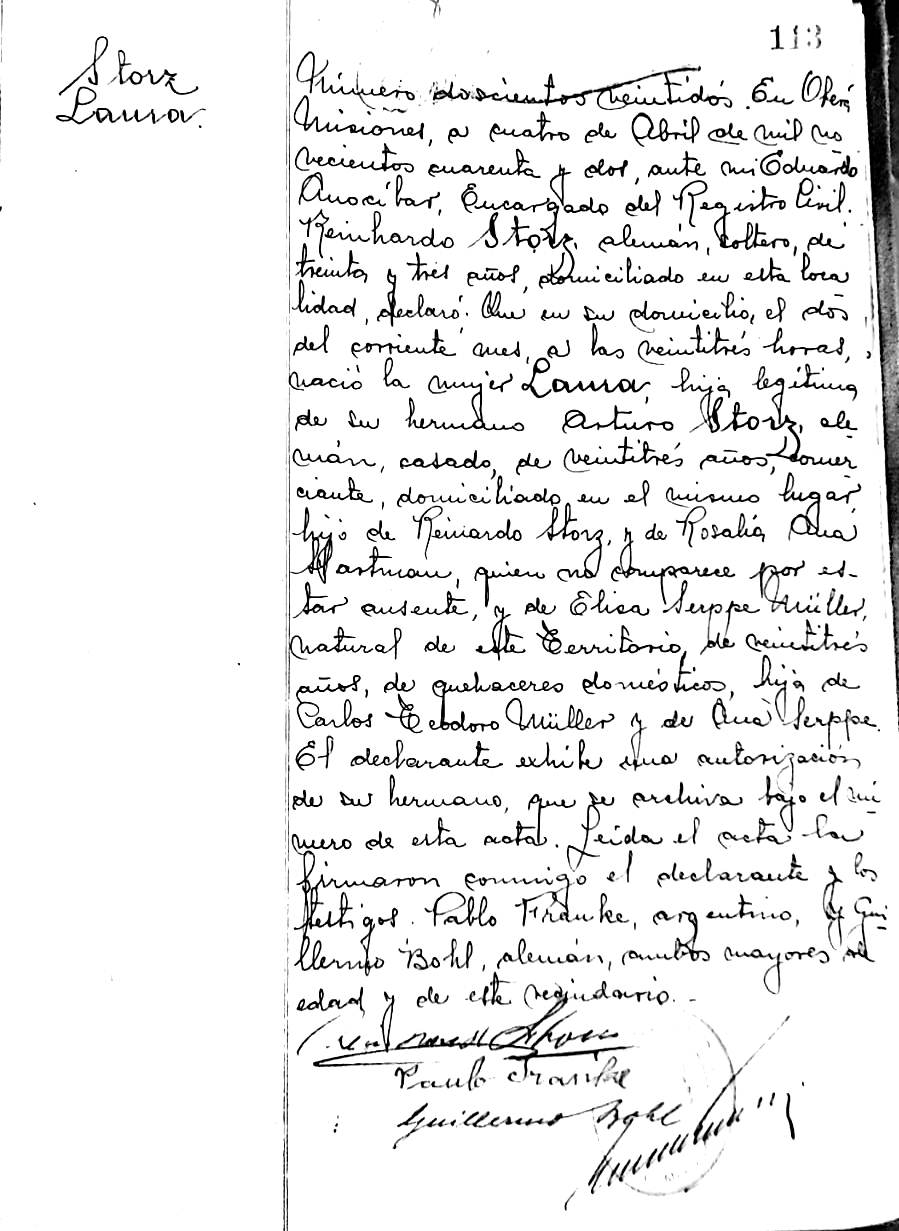 113
Storz
Laura.
Número doscientos veintidós. En Oberá
Misiones, a cuatro de Abril de mil no
vecientos cuarenta y dos, ante mi Eduardo
Anocíbar, Encargado del Registro Civil.
Reinhardo Storz, alemán, soltero, de
treinta y tres años, domiciliado en esta loca
lidad, declaró: Que en su domicilio, el dos
del corriente mes, a las veintitrés horas,
nació la mujer Laura, hija legítima
de su hermano Arturo Storz, ale-
mán, casado, de veintitrés años, comer
ciante, domiciliado en el mismo lugar
hijo de Reinardo Storz, y de Rosalía Ana
Hartman, quien no comparece por es-
tar ausente, y de Elisa Serppe Müller,
natural de este Territorio, de veintitrés
años, de quehaceres domésticos, hija de
Carlos Teodoro Müller y de Ana Serppe.
El declarante exhibe una autorización
de su hermano, que se archiva bajo el nú-
mero de esta acta. Leida el acta la
firmaron conmigo el declarante y los
testigos. Pablo Franke, argentino, y Gui-
llermo Bohl, alemán, ambos mayores de
edad y de este vecindario. -
Paulo Franke
Guillermo Bohl